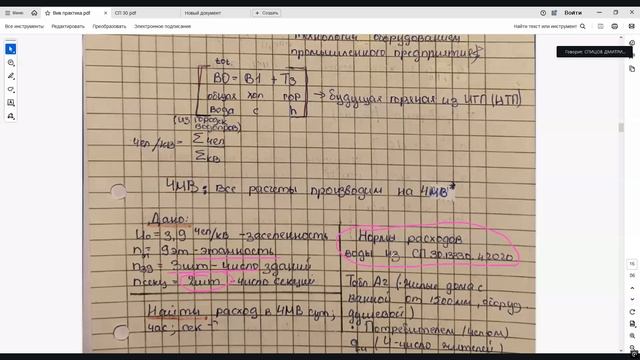 Вик практика.pdf
СП 30.pdf
Новый документ
+ Создать
Войти
Все инструменты
Редактировать
Преобразовать
Электронное подписание
Найти текст или инструменты
Говорит: СПИЦОВ ДМИТРИ...
технологич оборудованием
промышленного предприятия
tot
B0 = B1 + T3
общая хол гор
вода c h
→ будущая горячая из ИТП (ЦТП)
(из городск
водопров)
чел/кв = Σчел
Σкв
ЧМВ: все расчёты производим на ЧМВ*
Дано:
U0 = 3,9 чел/кв - заселенность
n = 9 эт - этажность
nзд = 3шт - число зданий
nсекц = 2шт - число секций
Найти: расход в ЧМВ сут;
час; сек - ?
Нормы расходов
воды из СП 30.13330.2020
Табл А2 (: жилые дома с
ванной от 1500мм, оборуд
душевой)
• Потребителем (челом)
(U - число жителей)
16